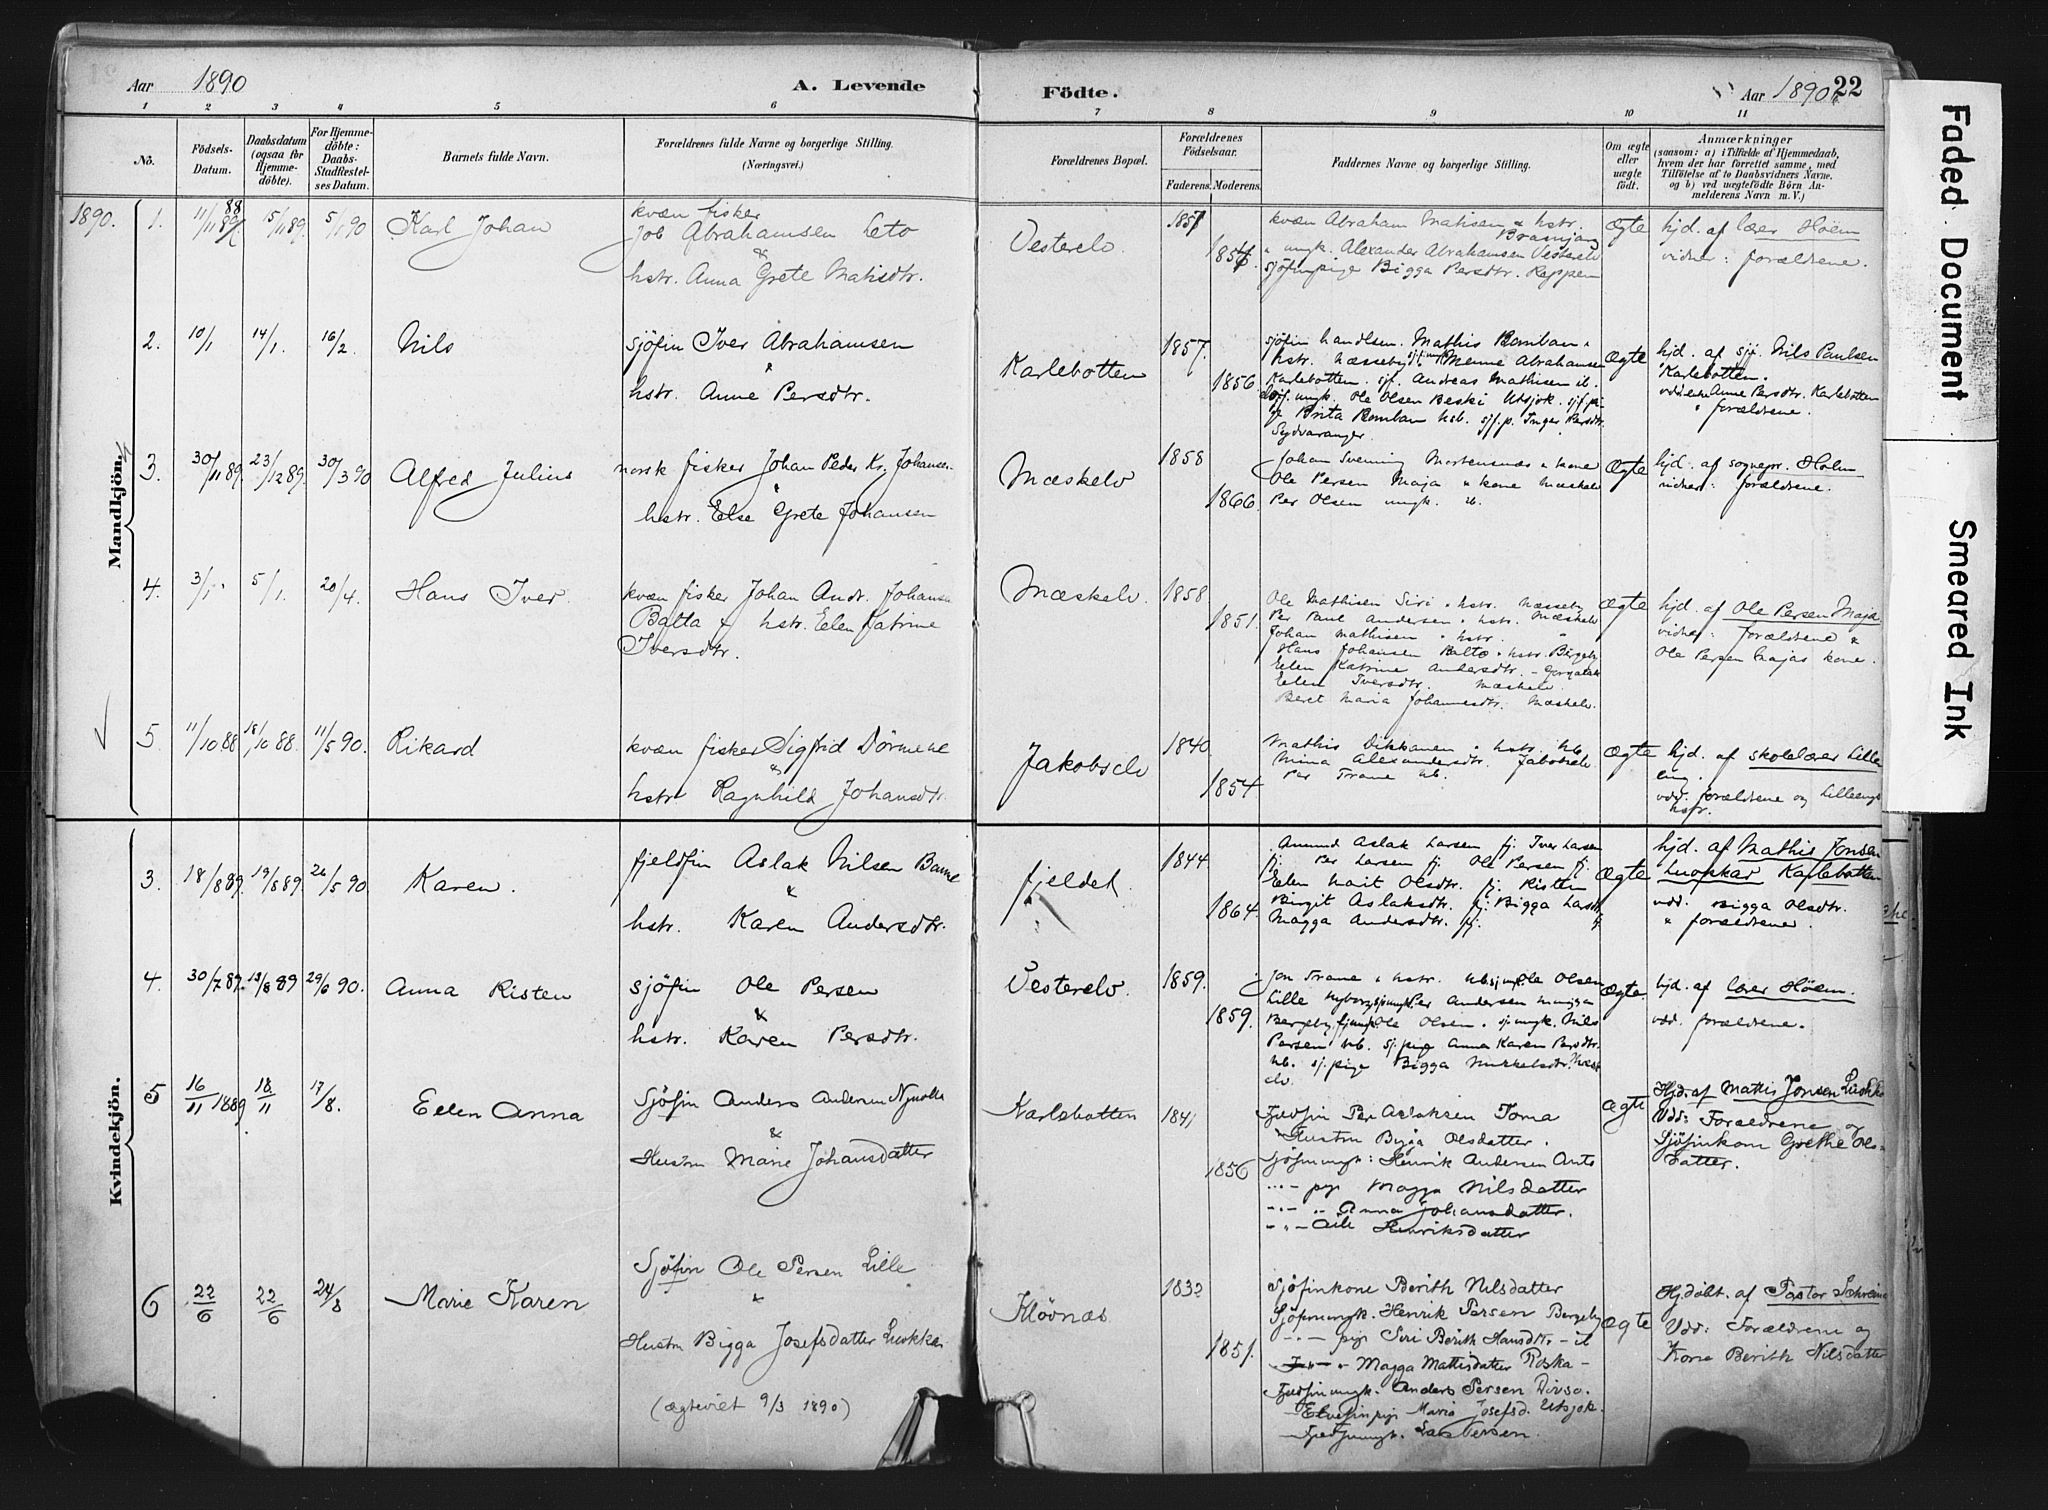 Aar 1890
A. Levende
Födte.
Aar 1890
22
1 2 3 4 5 6 7 8 9 10 11
No.
Födsels-Datum.
Daabsdatum (ogsaa for Hjemme-döbte).
For Hjemme-döbte: Daabs-Stadfæstel-ses Datum.
Barnets fulde Navn.
Forældrenes fulde Navne og borgerlige Stilling. (Næringsvei.)
Forældrenes Bopæl.
Forældrenes Födselsaar.
Faderens. Moderens.
Faddernes Navne og borgerlige Stilling.
Om ægte eller uægte födt.
Anmærkninger
(saasom: a) i Tilfælde af Hjemmedaab, hvem der har forrettet samme, med Tilföielse af to Daabsvidners Navne, og b) ved uægtefödte Börn An-melderens Navn m. V.)
Mandkjön.
1890.
1. 11/11 88 15/11 89. 5/1 90 Karl Johan
kvæn fisker
Job Abrahamsen Leto
&
hstr. Anna Grete Matisdtr.
Vesterelv
1857
1856.
kvæn Abraham Matisen & hstr.
ungk. Alexander Abrahamsen Vesterelv
sjöfinpige Bigga Persdtr. Reppen
Ægte
hjd. af lær Höem
vidner: forældrene.
2. 10/1 14/1. 16/2. Nils
sjöfin Iver Abrahamsen
&
hstr. Anne Persdtr.
Karlebotten
1857.
1856.
sjöfin handlsm. Mathis Bomban &
hstr. Næsseby. Menne Abrahamsen
Karlebotten. sjf. Andreas Mathisen it.
ungk. Ole Olsen Beski Utsjok. sjf. pi-
ge Brita Bomban hsb. sjf. p. Inger Persdtr.
Sydvaranger.
Ægte
hjd. af sjf. Nils Paulsen
Karlebotten.
Anne Persdtr. Karlebotten
& forældrene.
3. 30/11 89. 23/12 89. 30/3 90 Alfred Julius
norsk fisker Johan Peder Kr. Johansen
&
hstr. Else Grete Johansen
Mæskelv
1858
1866.
Johan Svenning Mortensnæs & kone
Ole Persen Maja & kone Mæskelv
Per Olsen ungk. it.
Ægte
hjd. af sognepr. Holm
vidner: forældrene.
4. 3/1. 5/1. 20/4. Hans Iver.
kvæn fisker Johan Andr. Johansen
Balta & hstr. Eelen Katrine
Iversdtr.
Mæskelv.
1858
1851.
Ole Mathisen Siri & hstr. Næsseby
Per Paul Andersen & hstr. Mæskelv
Johan Mathisen & hstr. "
Hans Johansen Balto & hstr. Bergeby
Eelen Katrine Andersdtr.
Eelen Iversdtr. Mæskelv.
Beret Maria Johannesdtr. Mæskelv.
Ægte
hjd. af Ole Persen Maja
vidner: forældrene &
Ole Persen Majas kone.
5. 11/10 88 18/10 88. 11/5 90. Rikard
kvæn fisker Sigfrid Dörmene
&
hstr. Ragnhild Johansdtr.
Jakobselv
1840.
1854
Mathis Dikkanen & hstr. Nb.
Mina Alexandersdtr. Jakobselv
Per Trane Nb.
Ægte
hjd. af skolelær Lille
eng.
vdd. forældrene og Lilleengs
hstr.
Kvindekjön.
3. 18/8 89. 19/8 89. 26/5 90. Karen.
fjeldfin Aslak Nilsen Banne
&
hstr. Karen Andersdtr.
fjeldet.
1844
1864.
Amund Aslak Larsen fj. Iver Larsen
fj. Per Larsen fj. Ole Persen fj.
Eelen Marit Olsdtr. fj. Kisten
Birgit Aslaksdtr. fj. Bigga Larsdtr.
Magga Andersdtr. fj.
Ægte
hjd. af Mathis Jonsen
Luopskar Karlebotten
vdd. Bigga Olsdtr.
& forældrene.
4. 30/7 89. 13/8 89 29/6 90. Anna Risten
sjöfin Ole Persen
&
hstr. Karen Persdtr.
Vesterelv.
1859.
1859.
Jon Trane & hstr. Nb. Ole Olsen
Lille Nyborg. Per Andersen
Bergeby, Ole Olsen. sj. ungk. Nils
Persen Nb. sj. pige Anna Karen Persdtr.
Nb. sj. pige Bigga Mikkelsdtr. Mæsk
elv.
Ægte.
hjd. af lær Höem.
vdd. forældrene.
5 16/11 1889. 18/11 17/8. Eelen Anna
Sjöfin Anders Andersen
&
Hustru Marie Johansdatter
Karlebotten
1841
1856
Fjeldfin Per Aslaksen Toma
& Hustru Bigga Olsdatter.
Sjöfinungk: Henrik Andersen Ants
" - pige Magga Nilsdatter
" - " Anna Johansdatter.
" - Aile Henriksdatter
Ægte
Hjd. af Mattis Jonsen
Vdd: Forældrene og
Sjöfinkone Grethe Ols-
datter.
6 22/6 22/6 24/8 Marie Karen
Sjöfin Ole Persen Lille
&
Hustru Bigga Josefsdatter Luokka
(ægteviet 9/3 1890)
Klövnæs
1832
1851.
Sjöfinkone Berith Nilsdatter
Sjöfinungk. Henrik Persen Bergeby
" - pige Siri Berith Hansdtr. - it
" Magga Mattisdatter Roska -
Fjeldfinungk. Anders Persen
Elvefinpige Maria Josefsd. Utsjok.
Fjeldfinungk. Lars Persen.
Ægte
Hjdöbt. af Pastor Schreine
Vdd: Forældrene og
Kone Berith Nilsdatter
Faded Document
Smeared Ink